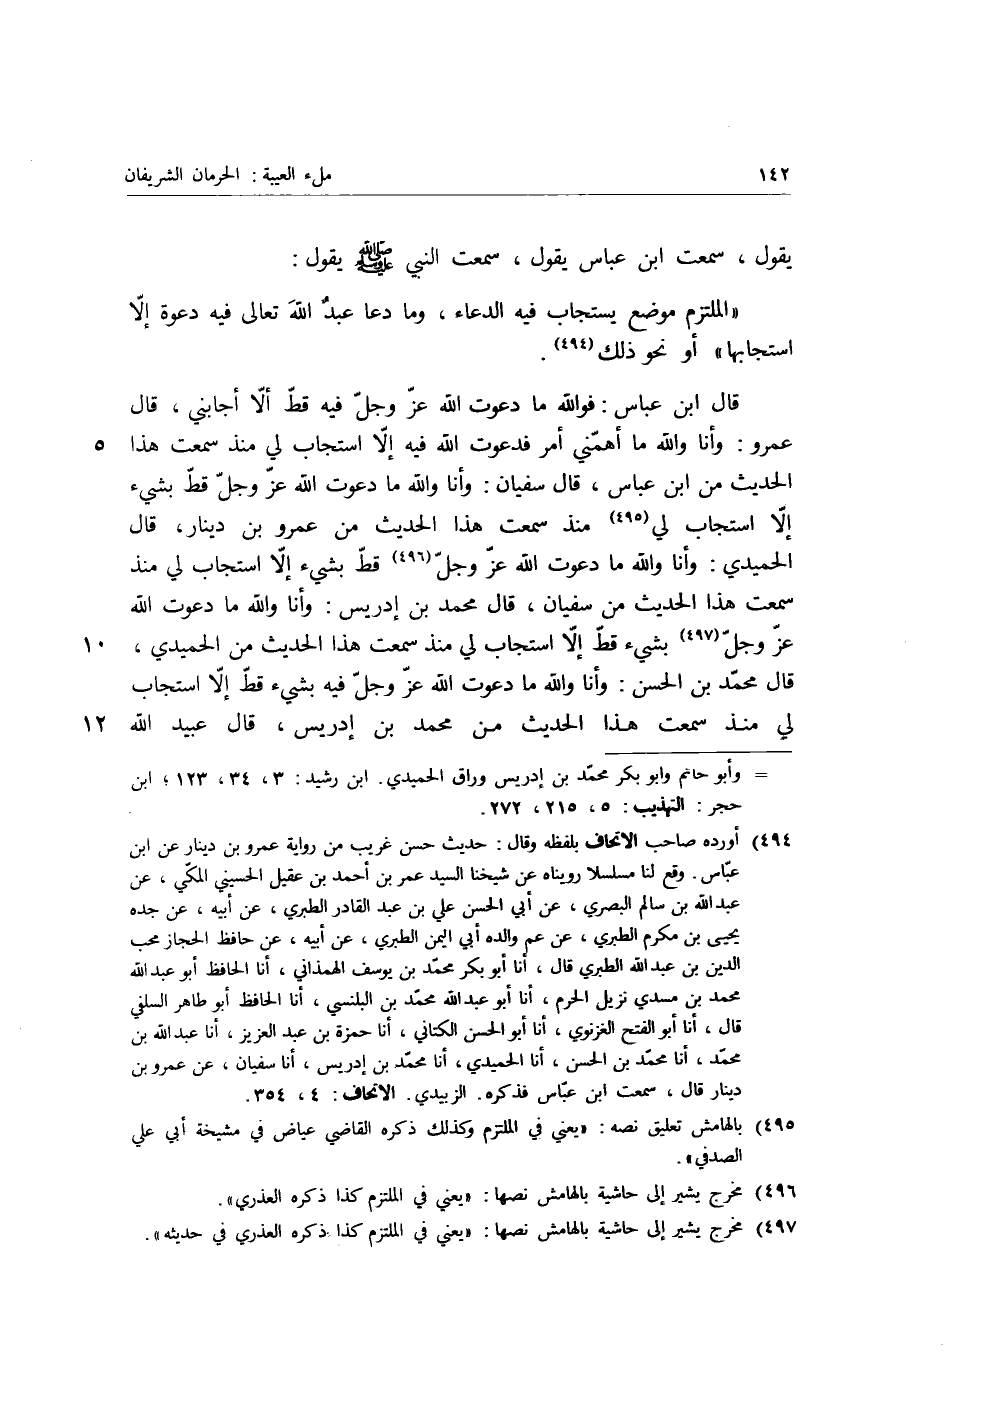 ١٤٢ ملء العيبة : الحرمان الشريفان
يقول ، سمعت ابن عباس يقول ، سمعت النبي ﷺ يقول :
«الملتزم موضع يستجاب فيه الدعاء ، وما دعا عبدٌ اللهَ تعالى فيه دعوة إلّا
استجابها» أو نحو ذلك(٤٩٤) .
قال ابن عباس : فوالله ما دعوت الله عزّ وجلّ فيه قطّ ألّا أجابني ، قال
عمرو : وأنا والله ما أهمّني أمر فدعوت الله فيه إلّا استجاب لي منذ سمعت هذا ٥
الحديث من ابن عباس ، قال سفيان : وأنا والله ما دعوت الله عزّ وجلّ قطّ بشيء
إلّا استجاب لي(٤٩٥) منذ سمعت هذا الحديث من عمرو بن دينار، قال
الحميدي : وأنا والله ما دعوت الله عزّ وجلّ(٤٩٦) قطّ بشيء إلّا استجاب لي منذ
سمعت هذا الحديث من سفيان ، قال محمد بن إدريس : وأنا والله ما دعوت الله
عزّ وجلّ(٤٩٧) بشيء قطّ إلّا استجاب لي منذ سمعت هذا الحديث من الحميدي ، ١٠
قال محمّد بن الحسن : وأنا والله ما دعوت الله عزّ وجلّ فيه بشيء قطّ إلّا استجاب
لي منذ سمعت هذا الحديث من محمد بن إدريس ، قال عبيد الله ١٢
= وأبو حاتم وابو بكر محمّد بن إدريس وراق الحميدي. ابن رشيد : ٣ ، ٣٤ ، ١٢٣ ؛ ابن
حجر : التهذيب : ٥ ، ٢١٥ ، ٢٧٢.
٤٩٤) أورده صاحب الاتحاف بلفظه وقال : حديث حسن غريب من رواية عمرو بن دينار عن ابن
عبّاس. وقع لنا مسلسلا رويناه عن شيخنا السيد عمر بن أحمد بن عقيل الحسيني المكّي ، عن
عبدالله بن سالم البصري ، عن أبي الحسن علي بن عبد القادر الطبري ، عن أبيه ، عن جده
يحيى بن مكرم الطبري ، عن عم والده أبي اليمن الطبري ، عن أبيه ، عن حافظ الحجاز محب
الدين بن عبدالله الطبري قال ، أنا أبو بكر محمّد بن يوسف الهمذاني ، أنا الحافظ أبو عبدالله
محمد بن مسدي نزيل الحرم ، أنا أبو عبدالله محمّد بن البلنسي ، أنا الحافظ أبو طاهر السلفي
قال ، أنا أبو الفتح الغزنوي ، أنا أبو الحسن الكتاني ، أنا حمزة بن عبد العزيز ، أنا عبدالله بن
محمّد ، أنا محمّد بن الحسن ، أنا الحميدي، أنا محمّد بن إدريس ، أنا سفيان ، عن عمرو بن
دينار قال ، سمعت ابن عبّاس فذكره. الزبيدي. الاتحاف : ٤ ، ٣٥٤.
٤٩٥) بالهامش تعليق نصه : «يعني في الملتزم وكذلك ذكره القاضي عياض في مشيخة أبي علي
الصدفي» .
٤٩٦) مخرج يشير إلى حاشية بالهامش نصها : «يعني في الملتزم كذا ذكره العذري» .
٤٩٧) مخرج يشير إلى حاشية بالهامش نصها : «يعني في الملتزم كذا ذكره العذري في حديثه» .